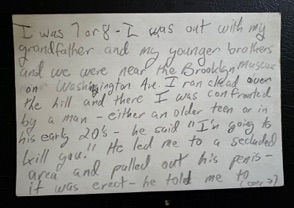 I was 7 or 8 - I was out with my
grandfather and my younger brothers
and we were near the Brooklyn Museum
on Washington Ave. I ran ahead over
the hill and there I was confronted
by a man - either an older teen or in
his early 20's - he said "I'm going to
kill you." He led me to a secluded
area and pulled out his penis -
it was erect - he told me to